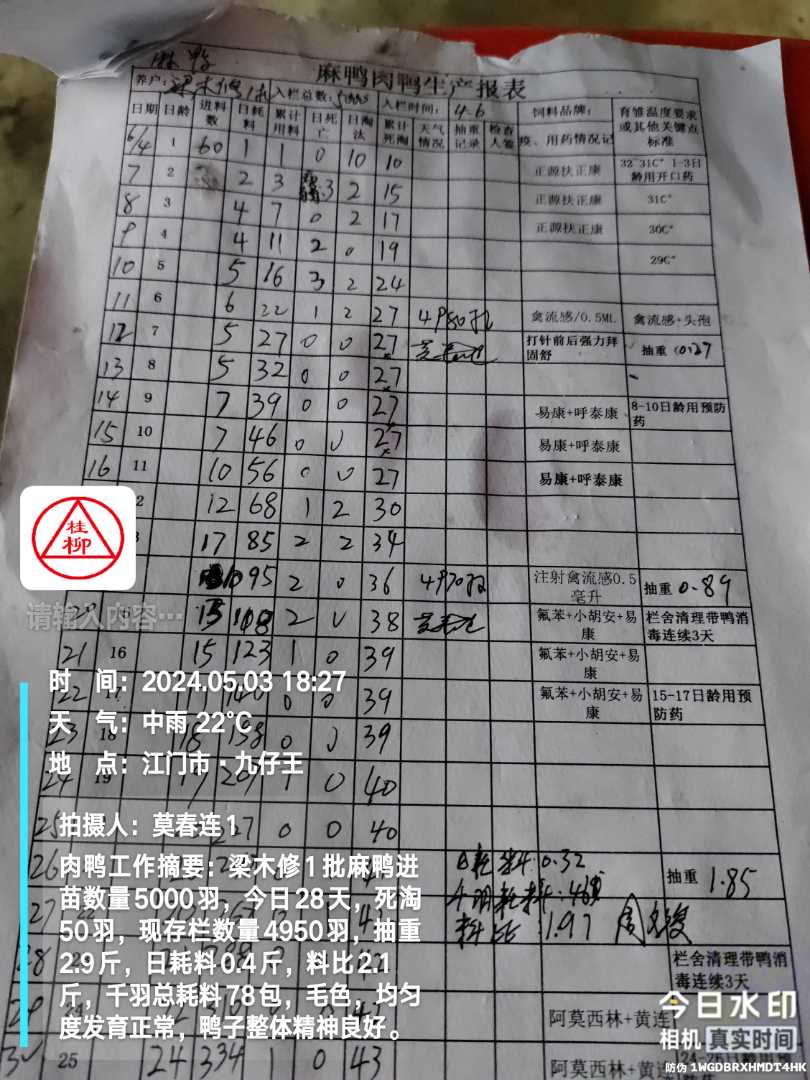 麻鸭
麻鸭肉鸭生产报表
养户: 梁木修1批 入栏总数: 5000 入栏时间: 4-6 饲料品牌: 育雏温度要求或其他关键点标准
日期 日龄 进料数 日耗料 累计用料 日死亡 日淘汰 累计死淘 天气情况 抽重记录 检查人签 疫、用药情况记
6/4 1 60 1 1 0 10 10 32~31C° 1-3日龄用开口药
7 2 2 3 3 2 15 正源扶正康
8 3 4 7 0 2 17 正源扶正康 31C°
9 4 4 11 2 0 19 正源扶正康 30C°
10 5 5 16 3 2 24 29C°
11 6 6 22 1 2 27 4980 禽流感/0.5ML 禽流感+头孢
12 7 5 27 0 0 27 打针前后强力拜固舒 抽重 0.27
13 8 5 32 0 0 27
14 9 7 39 0 0 27 易康+呼泰康 8-10日龄用预防药
15 10 7 46 0 0 27 易康+呼泰康
16 11 10 56 0 0 27 易康+呼泰康
2 12 68 1 2 30
3 17 85 2 2 34
10 95 2 0 36 4970 注射禽流感0.5毫升 抽重 0.89
20 15 108 2 0 38 氟苯+小胡安+易康 栏舍清理带鸭消毒连续3天
21 16 15 123 1 0 39 氟苯+小胡安+易康
22 0 0 39 氟苯+小胡安+易康 15-17日龄用预防药
23 18 18 158 0 0 39
24 19 1 0 40
25 0 0 40
26 日耗料4.0.32 抽重 1.85
27 22
料比:1.97
28 栏舍清理带鸭消毒连续3天
29 阿莫西林+黄连
25 24 334 1 0 43 阿莫西林+黄连 24-26日龄用预
桂柳
请输入内容…
时 间: 2024.05.03 18:27
天 气: 中雨 22℃
地 点: 江门市·九仔王
拍摄人: 莫春连1
肉鸭工作摘要: 梁木修1批麻鸭进
苗数量5000羽，今日28天，死淘
50羽，现存栏数量4950羽，抽重
2.9斤，日耗料0.4斤，料比2.1
斤，千羽总耗料78包，毛色，均匀
度发育正常，鸭子整体精神良好。
今日水印
相机 真实时间
防伪 1WGDBRXHMDT4HK